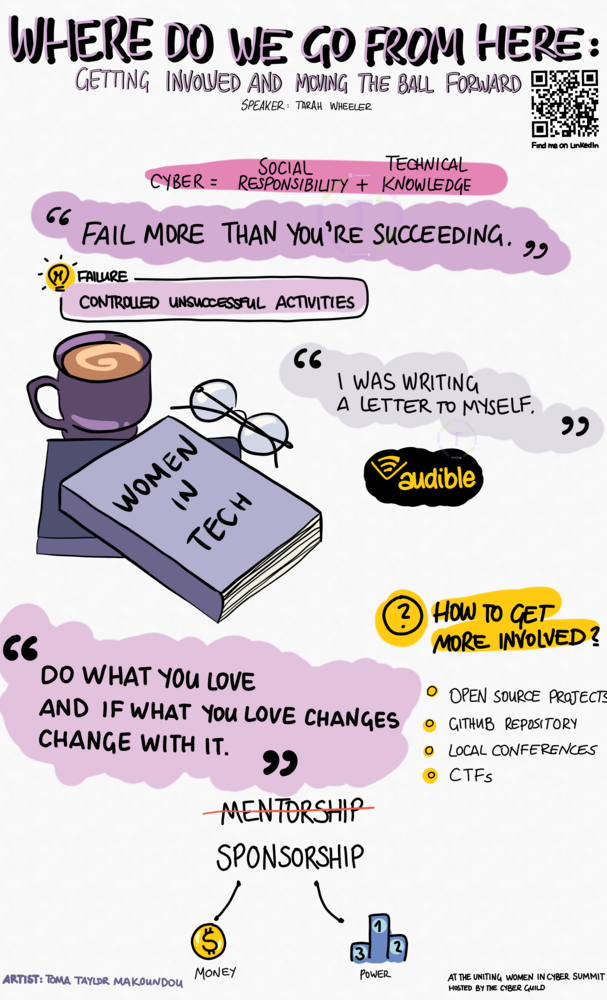 WHERE DO WE GO FROM HERE:
GETTING INVOLVED AND MOVING THE BALL FORWARD
SPEAKER: TARAH WHEELER
Find me on LinkedIn
CYBER = SOCIAL RESPONSIBILITY + TECHNICAL KNOWLEDGE
“ FAIL MORE THAN YOU'RE SUCCEEDING. ”
FAILURE
CONTROLLED UNSUCCESSFUL ACTIVITIES
“ I WAS WRITING
A LETTER TO MYSELF. ”
audible
WOMEN
IN
TECH
? HOW TO GET
MORE INVOLVED?
OPEN SOURCE PROJECTS
GITHUB REPOSITORY
LOCAL CONFERENCES
CTFs
“ DO WHAT YOU LOVE
AND IF WHAT YOU LOVE CHANGES
CHANGE WITH IT. ”
MENTORSHIP
SPONSORSHIP
$
MONEY
1
3 2
POWER
ARTIST: TOMA TAYLOR MAKOUNDOU
AT THE UNITING WOMEN IN CYBER SUMMIT
HOSTED BY THE CYBER GUILD